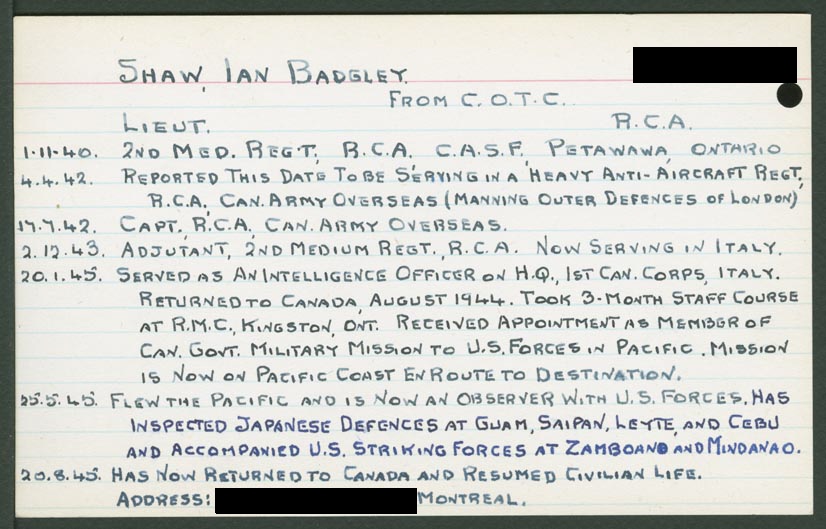 SHAW, IAN BADGLEY.
FROM C.O.T.C.
LIEUT. R.C.A.
1-11-40. 2ND MED. REGT., R.C.A. C.A.S.F., PETAWAWA, ONTARIO
4.4.42. REPORTED THIS DATE TO BE SERVING IN A HEAVY ANTI-AIRCRAFT REGT,
R.C.A, CAN. ARMY OVERSEAS (MANNING OUTER DEFENCES OF LONDON)
17.7.42. CAPT., R.C.A., CAN. ARMY OVERSEAS.
2.12.43. ADJUTANT, 2ND MEDIUM REGT., R.C.A. NOW SERVING IN ITALY.
20.1.45. SERVED AS AN INTELLIGENCE OFFICER ON H.Q., 1ST CAN. CORPS, ITALY.
RETURNED TO CANADA, AUGUST 1944. TOOK 3-MONTH STAFF COURSE
AT R.M.C., KINGSTON, ONT. RECEIVED APPOINTMENT AS MEMBER OF
CAN. GOVT. MILITARY MISSION TO U.S. FORCES IN PACIFIC. MISSION
IS NOW ON PACIFIC COAST EN ROUTE TO DESTINATION.
25.5.45. FLEW THE PACIFIC AND IS NOW AN OBSERVER WITH U.S. FORCES. HAS
INSPECTED JAPANESE DEFENCES AT GUAM, SAIPAN, LEYTE, AND CEBU
AND ACCOMPANIED U.S. STRIKING FORCES AT ZAMBOANO AND MINDANAO.
20.8.45. HAS NOW RETURNED TO CANADA AND RESUMED CIVILIAN LIFE.
ADDRESS: MONTREAL.